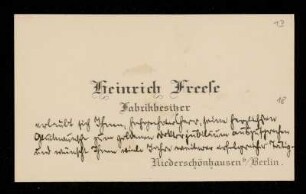 13
Heinrich Freese
Fabrikbesitzer
18
erlaubt sich Ihnen, hochgeehrter Herr, seine herzlichsten
Glückwünsche zum goldenen Doktorjubiläum auszusprechen
und wünscht Ihnen viele Jahre weiterer erfolgreicher Tätig-
Niederschönhausen b/Berlin.